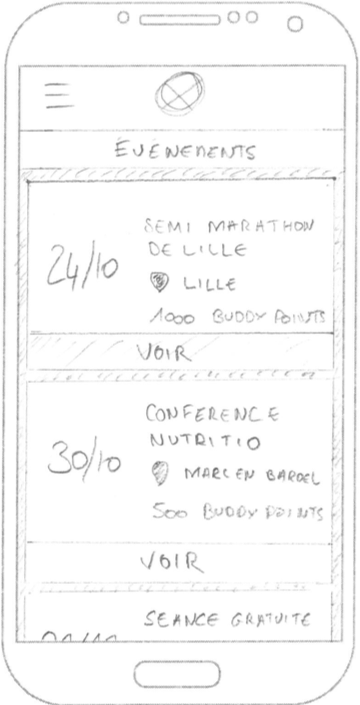 ÉVÉNEMENTS
24/10
SEMI MARATHON
DE LILLE
LILLE
1000 BUDDY POINTS
VOIR
30/10
CONFERENCE
NUTRITIO
MARC EN BAROEL
500 BUDDY POINTS
VOIR
SEANCE GRATUITE